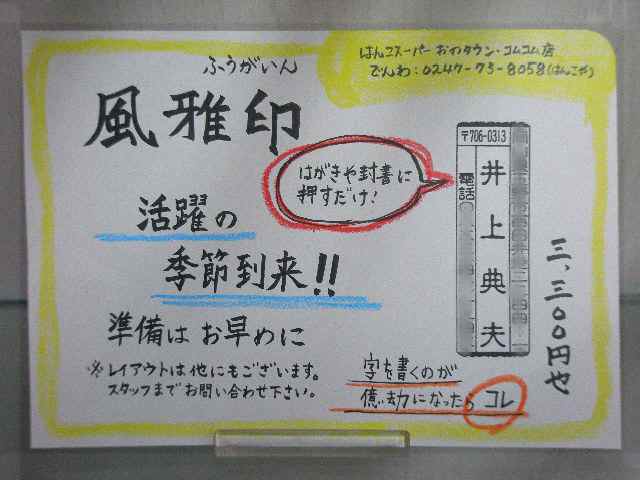 はんこスーパー おのタウン・コムコム店
でんわ:0247-73-8058(はんこや)
ふうがいん
風雅印
はがきや封書に
押すだけ!
〒706-0313
電話
井上典夫
活躍の
季節到来!!
準備は お早めに
※レイアウトは他にもございます。
スタッフまでお問い合わせ下さい。
三、三〇〇円也
字を書くのが
億劫になったら コレ